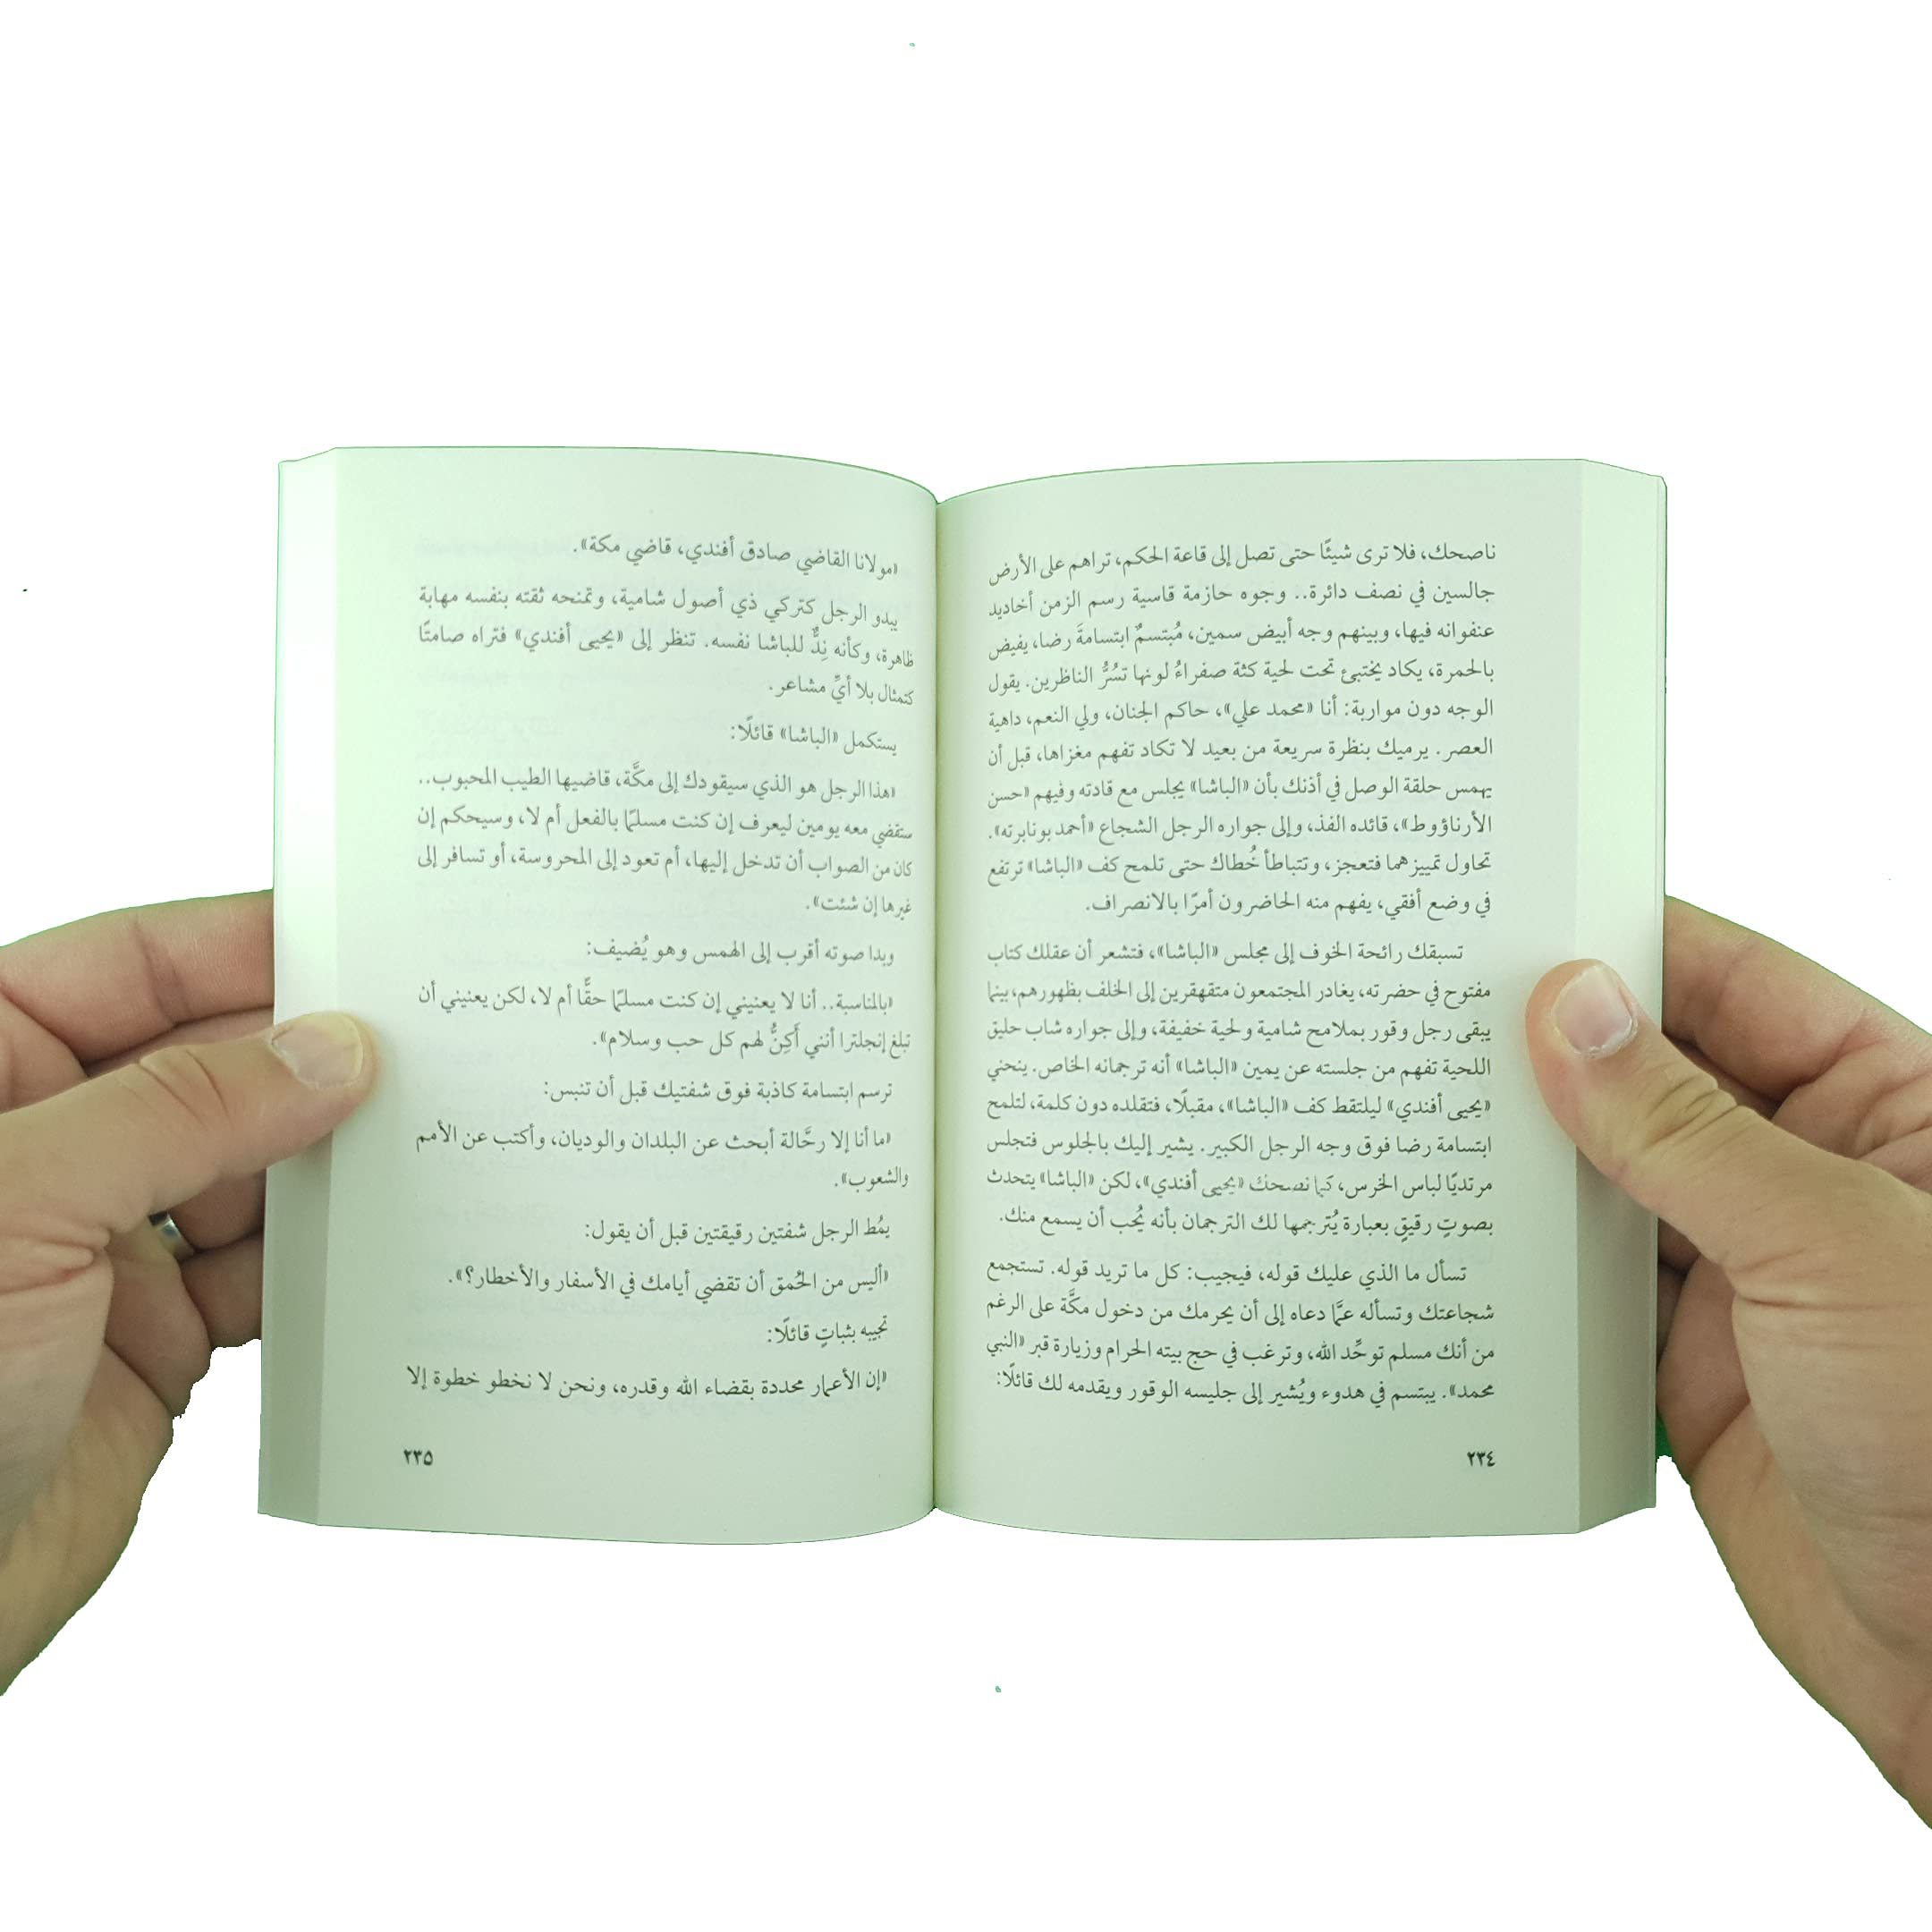 ناصحك، فلا ترى شيئًا حتى تصل إلى قاعة الحكم، تراهم على الأرض
جالسين في نصف دائرة.. وجوه حازمة قاسية رسم الزمن أخاديد
عنفوانه فيها، وبينهم وجه أبيض سمين، مُبتسمٌ ابتسامةَ رضا، يفيض
بالحمرة، يكاد يختبئ تحت لحية كثة صفراءُ لونها تسُرُّ الناظرين. يقول
الوجه دون مواربة: أنا «محمد علي»، حاكم الجنان، ولي النعم، داهية
العصر. يرميك بنظرة سريعة من بعيد لا تكاد تفهم مغزاها، قبل أن
يهمس حلقة الوصل في أذنك بأن «الباشا» يجلس مع قادته وفيهم «حسن
الأرناؤوط»، قائده الفذ، وإلى جواره الرجل الشجاع «أحمد بونابرته».
تحاول تمييزهما فتعجز، وتتباطأ خُطاك حتى تلمح كف «الباشا» ترتفع
في وضع أفقي، يفهم منه الحاضرون أمرًا بالانصراف.
تسبقك رائحة الخوف إلى مجلس «الباشا»، فتشعر أن عقلك كتاب
مفتوح في حضرته، يغادر المجتمعون متقهقرين إلى الخلف بظهورهم، بينما
يبقى رجل وقور بملامح شامية ولحية خفيفة، وإلى جواره شاب حليق
اللحية تفهم من جلسته عن يمين «الباشا» أنه ترجمانه الخاص. ينحني
«يحيى أفندي» ليلتقط كف «الباشا»، مقبلًا، فتقلده دون كلمة، لتلمح
ابتسامة رضا فوق وجه الرجل الكبير. يشير إليك بالجلوس فتجلس
مرتديًا لباس الخرس، كما نصحك «يحيى أفندي»، لكن «الباشا» يتحدث
بصوتٍ رقيقٍ بعبارة يُترجمها لك الترجمان بأنه يُحب أن يسمع منك.
تسأل ما الذي عليك قوله، فيجيب: كل ما تريد قوله. تستجمع
شجاعتك وتسأله عمَّا دعاه إلى أن يحرمك من دخول مكَّة على الرغم
من أنك مسلم توحِّد الله، وترغب في حج بيته الحرام وزيارة قبر «النبي
محمد». يبتسم في هدوء ويُشير إلى جليسه الوقور ويقدمه لك قائلًا:
٢٣٤
«مولانا القاضي صادق أفندي، قاضي مكة».
يبدو الرجل كتركي ذي أصول شامية، وتمنحه ثقته بنفسه مهابة
ظاهرة، وكأنه نِدٌّ للباشا نفسه. تنظر إلى «يحيى أفندي» فتراه صامتًا
كتمثال بلا أيِّ مشاعر.
يستكمل «الباشا» قائلًا:
«هذا الرجل هو الذي سيقودك إلى مكَّة، قاضيها الطيب المحبوب..
ستقضي معه يومين ليعرف إن كنت مسلمًا بالفعل أم لا، وسيحكم إن
كان من الصواب أن تدخل إليها، أم تعود إلى المحروسة، أو تسافر إلى
غيرها إن شئت».
وبدا صوته أقرب إلى الهمس وهو يُضيف:
«بالمناسبة.. أنا لا يعنيني إن كنت مسلمًا حقًّا أم لا، لكن يعنيني أن
تبلغ إنجلترا أنني أَكِنُّ لهم كل حب وسلام».
ترسم ابتسامة كاذبة فوق شفتيك قبل أن تنبس:
«ما أنا إلا رحَّالة أبحث عن البلدان والوديان، وأكتب عن الأمم
والشعوب».
يمُط الرجل شفتين رقيقتين قبل أن يقول:
«أليس من الحُمق أن تقضي أيامك في الأسفار والأخطار؟».
تجيبه بثباتٍ قائلًا:
«إن الأعمار محددة بقضاء الله وقدره، ونحن لا نخطو خطوة إلا
٢٣٥